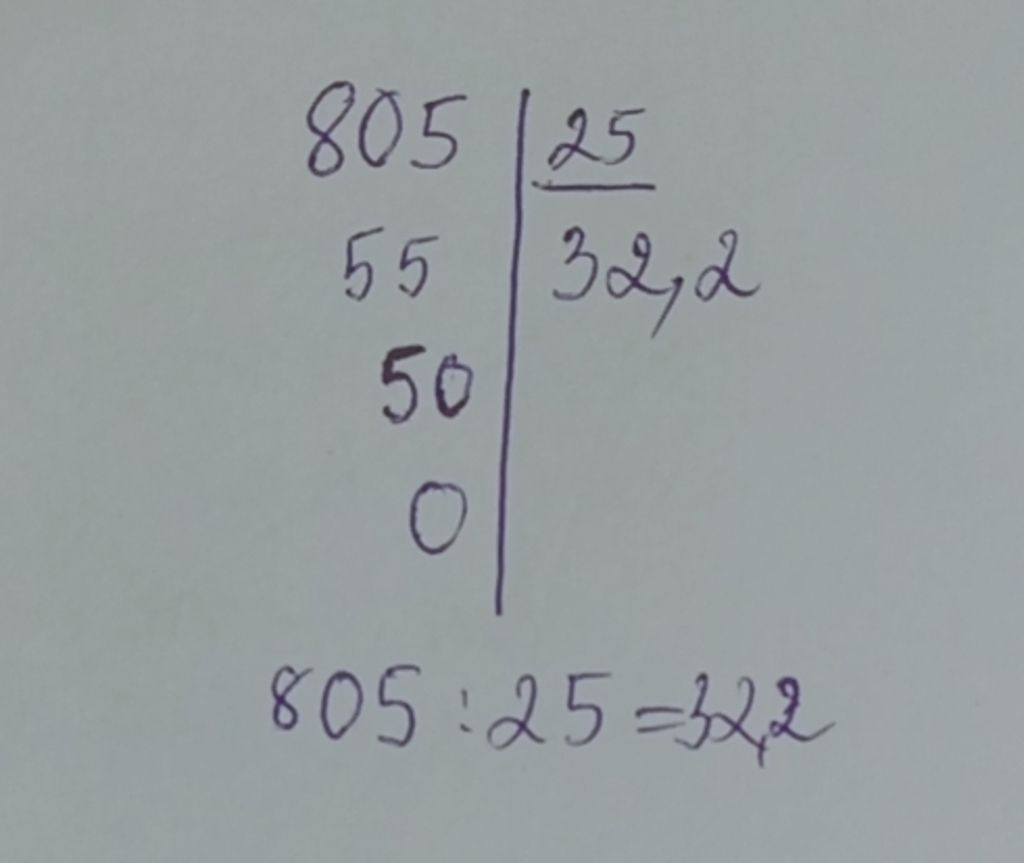 805 25
55 32,2
50
0
805 : 25 = 32,2